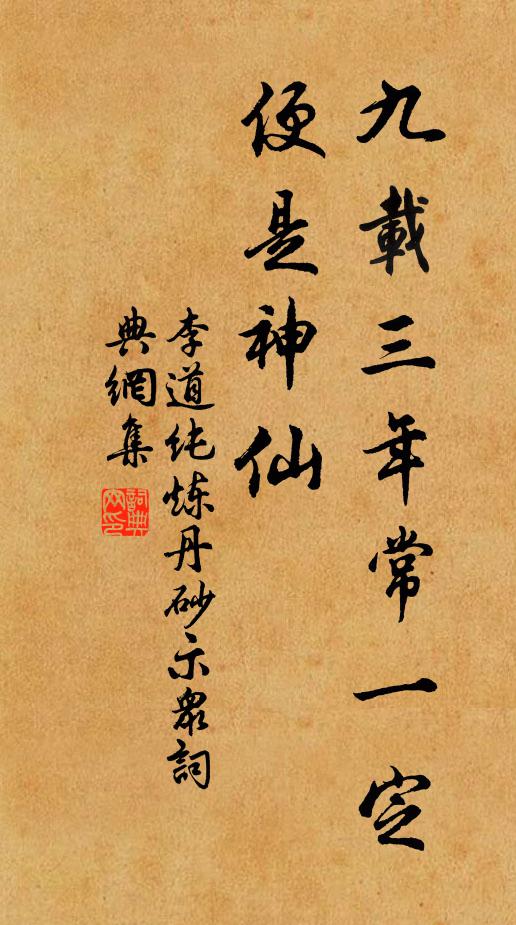 九載三年常一定
便是神仙
李道純煉丹砂示眾詞
典網集
詞典網印